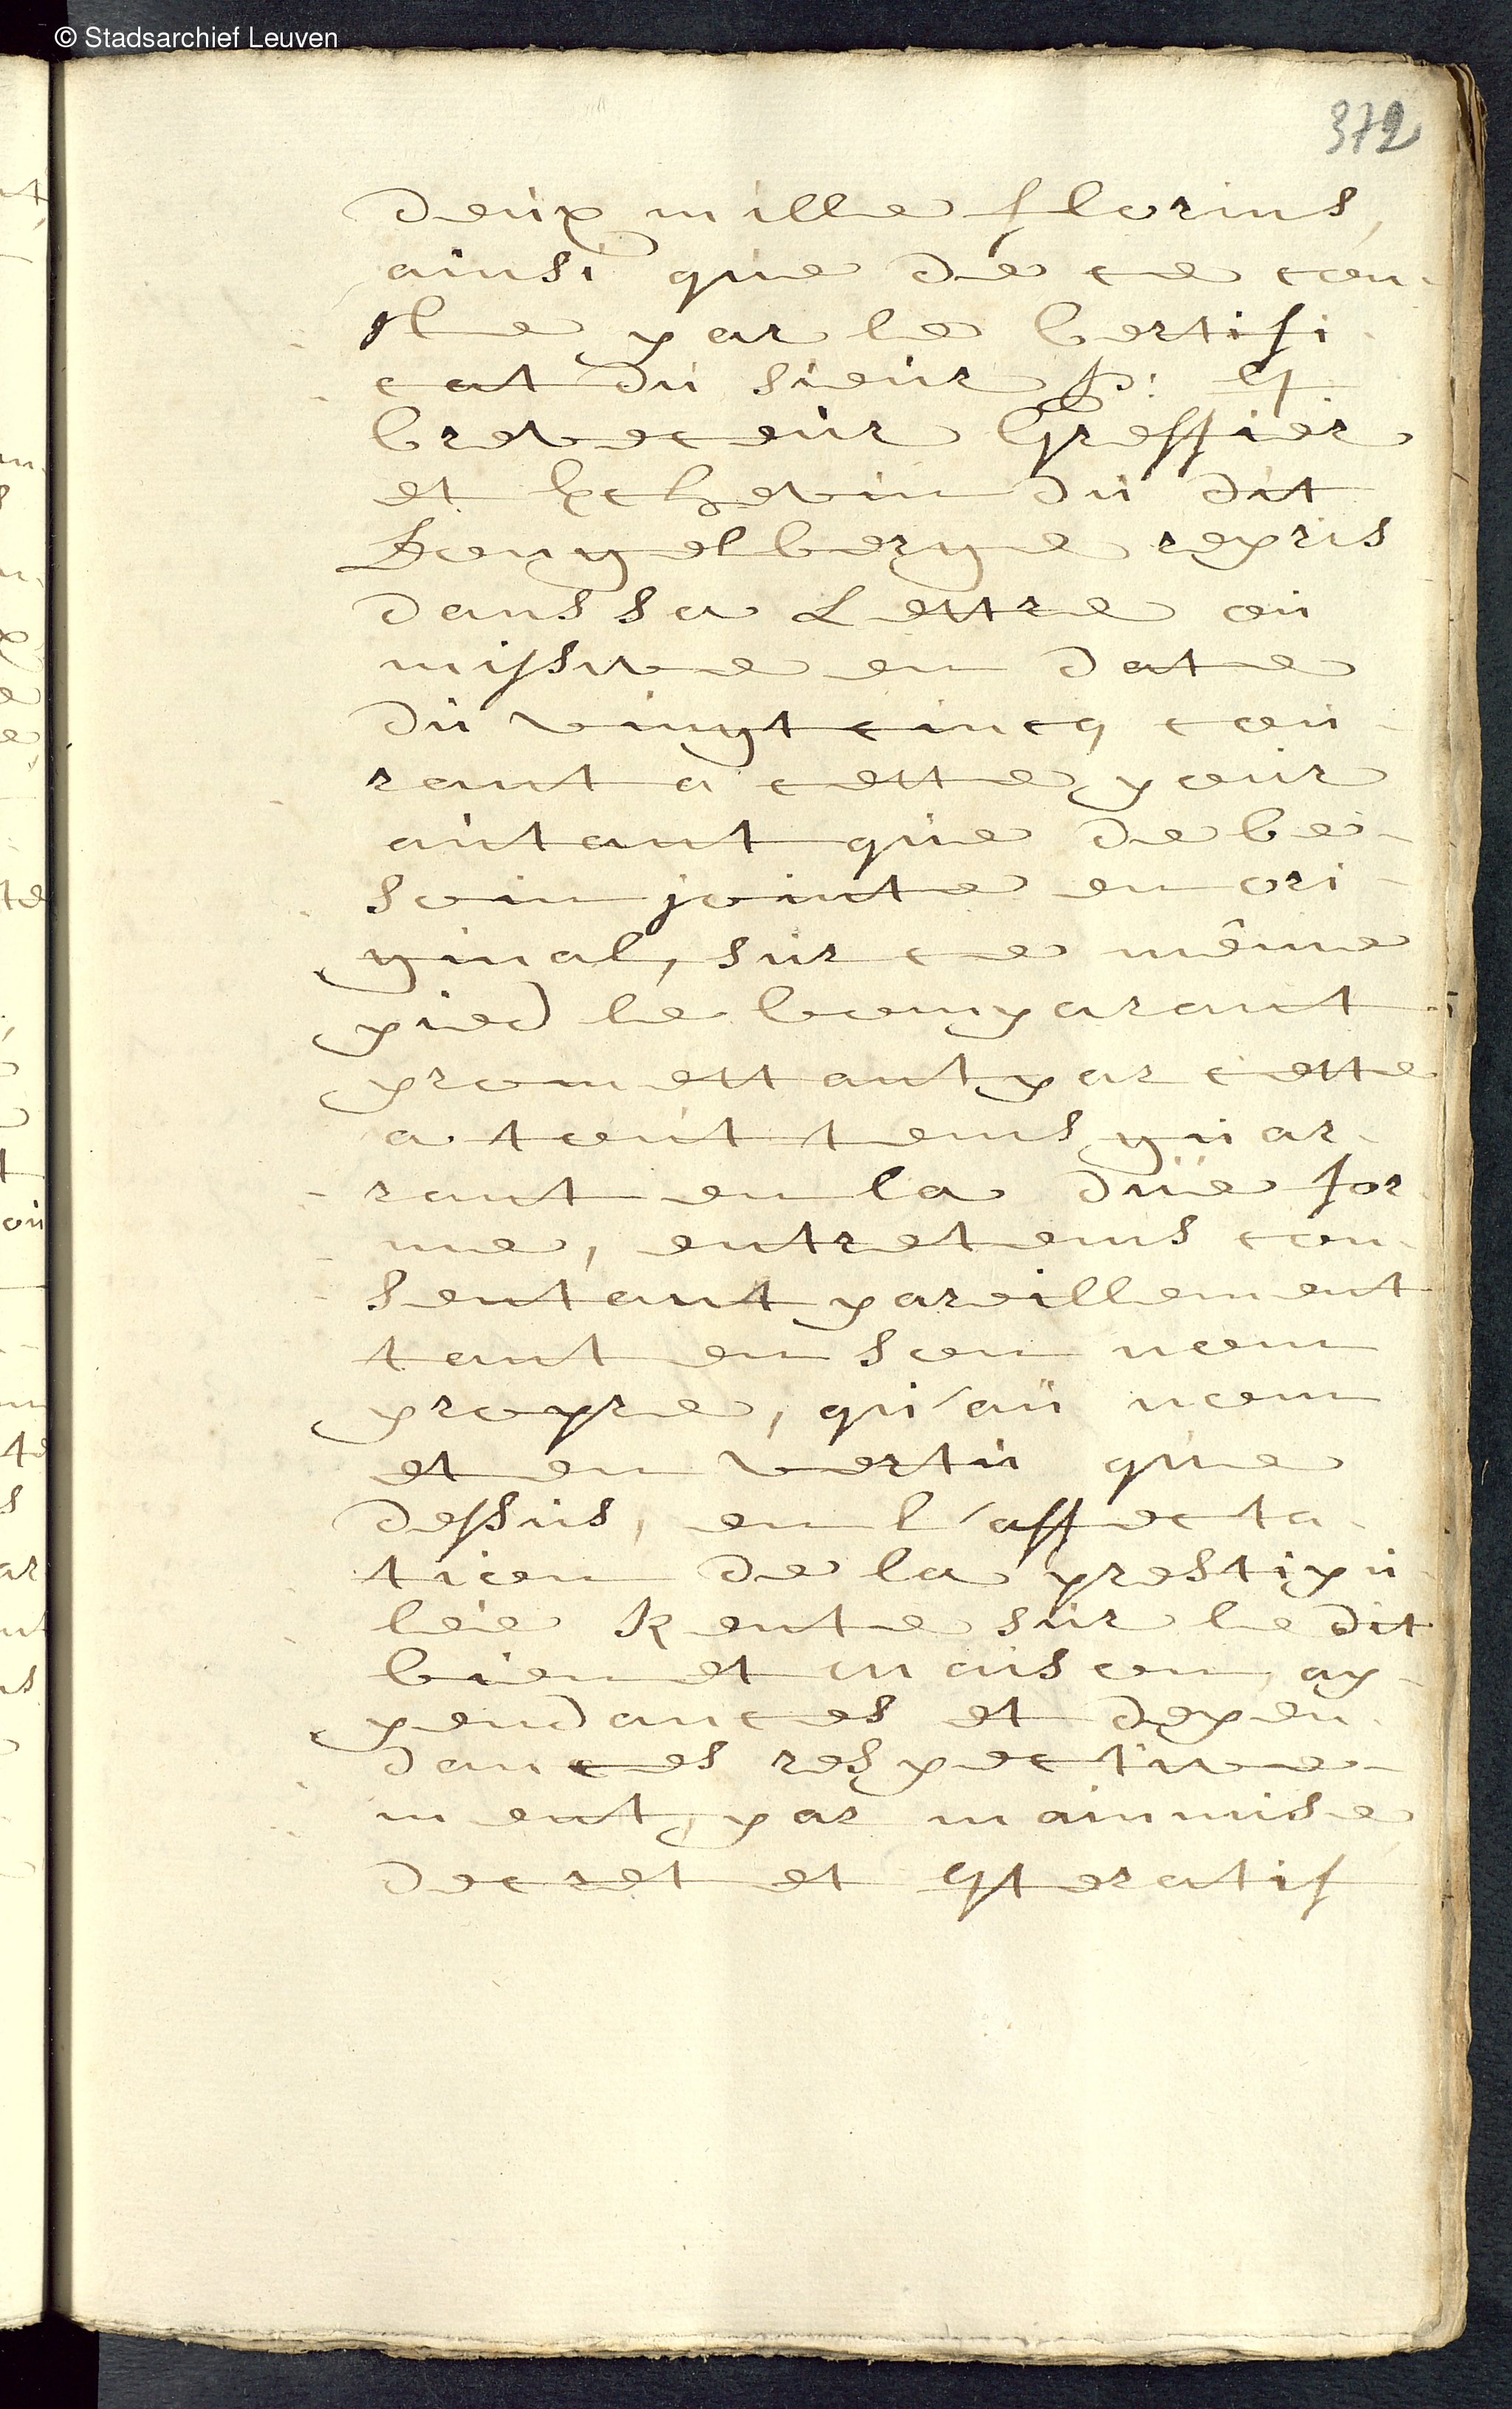 © Stadsarchief Leuven
372
deux mille florins,
ainsi que de ce con-
ste par le Certifi-
cat du sieur
Greffier
et Echevin du dit
Bongelberge repris
dans sa Lettre ou
missive en date
du vingt cincq cou-
rant a cette pour
autant que de be-
soin jointe en ori-
ginal, sur ce même
pied le Comparant
promettant par cette
a tout tems guar-
rant en la düe for-
me, entretems con-
sentant pareillement
tant en son nom
propre, qu'au nom
et en vertu que
dessus, en l'affecta-
tion de la prestipu-
lée Rente sur le dit
bien et maison, ap-
pendances et depen-
dances respective-
ment, par mainmise
decret et